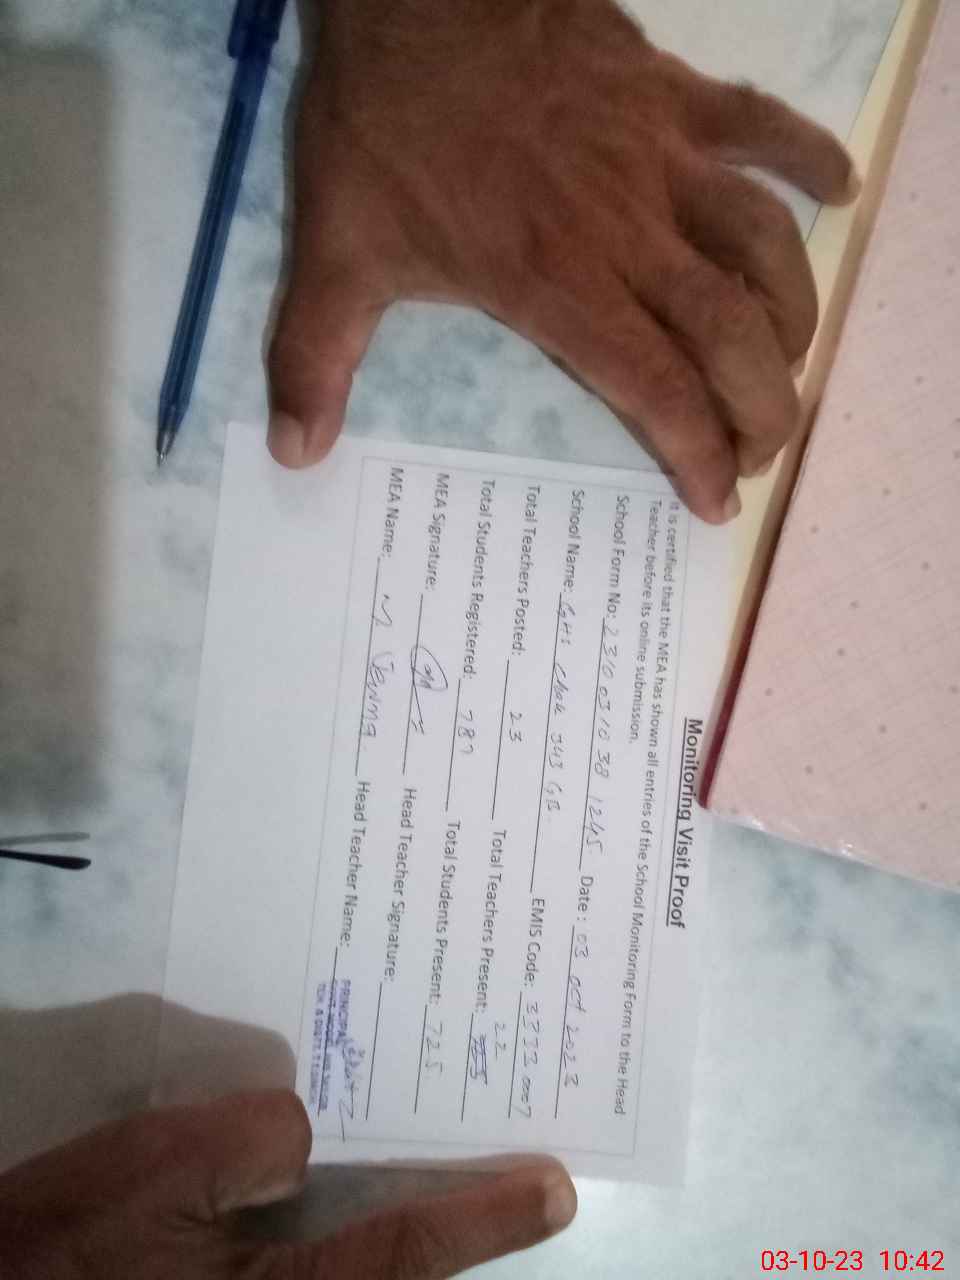 Monitoring Visit Proof
It is certified that the MEA has shown all entries of the School Monitoring Form to the Head
Teacher before its online submission.
School Form No: 2310 03 10 38 1245 Date : 03 oct 2023
School Name: GHS Chak 343 GB. EMIS Code: 3333 0007
Total Teachers Posted: 23 Total Teachers Present: 22
Total Students Registered: 787 Total Students Present: 725
MEA Signature: Head Teacher Signature:
MEA Name: M Head Teacher Name:
PRINCIPAL
03-10-23 10:42